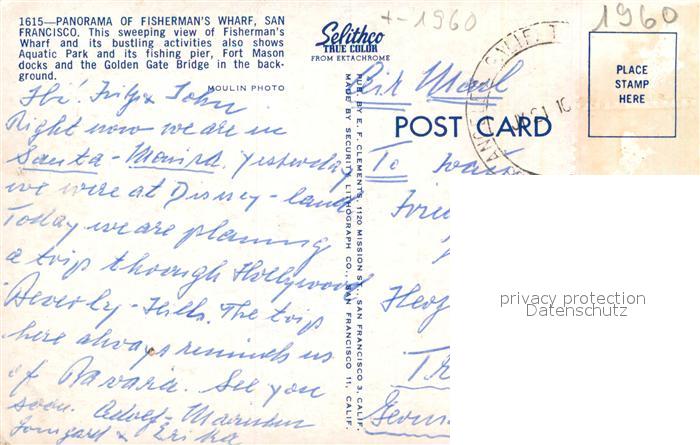 1615—PANORAMA OF FISHERMAN'S WHARF, SAN
FRANCISCO. This sweeping view of Fisherman's
Wharf and its bustling activities also shows
Aquatic Park and its fishing pier, Fort Mason
docks and the Golden Gate Bridge in the back-
ground.
MOULIN PHOTO
Hi! Fritz & John
Right now we are in
Santa - Monica. Yesterday
we were at Disney - land
Today we are planning
a trip through Hollywood
Beverly - Hills. The trip
here always reminds us
of Bavaria. See you
soon. Adolf -
Irmgard & Erika
Selithco
TRUE COLOR
FROM EKTACHROME
PUB. BY E. F. CLEMENTS, 1120 MISSION ST., SAN FRANCISCO 3, CALIF.
MADE BY SECURITY LITHOGRAPH CO., SAN FRANCISCO 11, CALIF.
1960
1960
Air Mail
POST CARD
PLACE
STAMP
HERE
To
privacy protection
Datenschutz